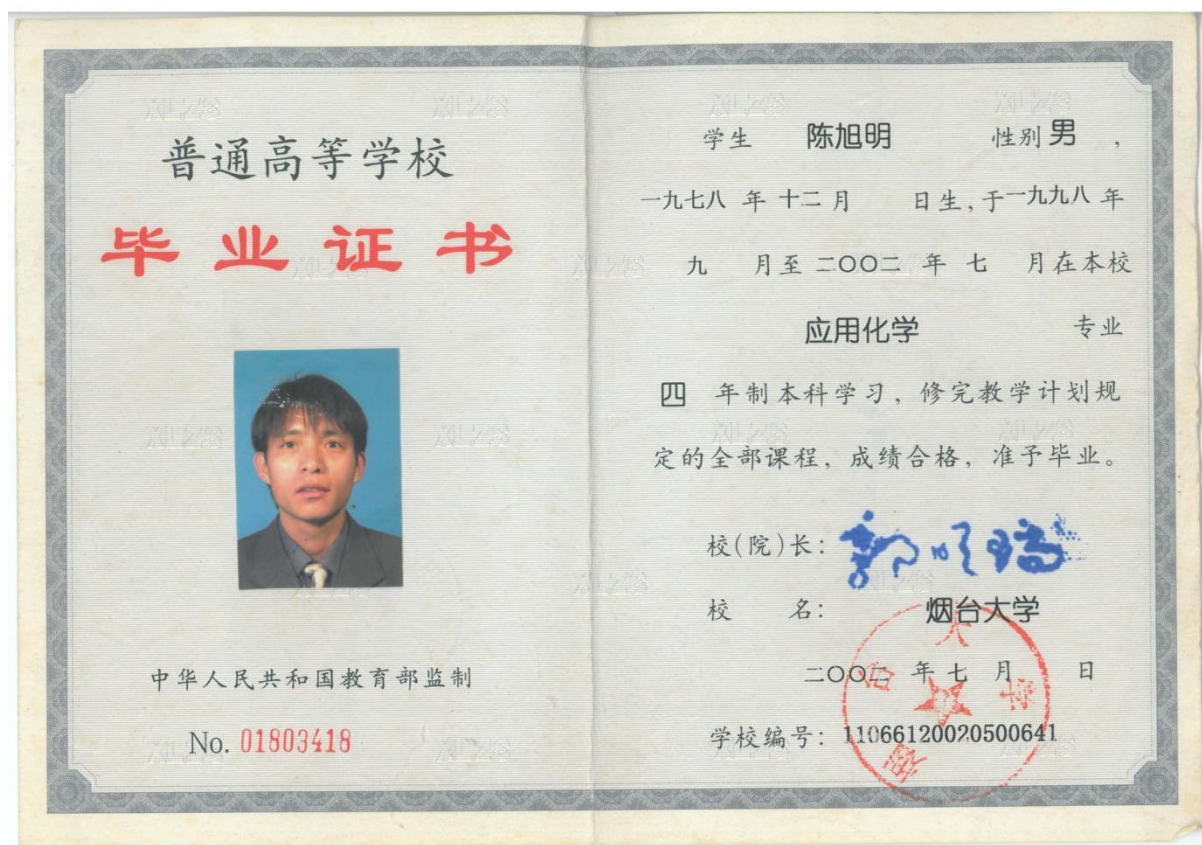 普通高等学校
毕业证书
中华人民共和国教育部监制
No. 01803418
学生 陈旭明 性别 男，
一九七八 年 十二 月 日生，于一九九八 年
九 月至 二〇〇二 年 七 月在本校
应用化学 专业
四 年制本科学习，修完教学计划规
定的全部课程，成绩合格，准予毕业。
校(院)长：
校 名： 烟台大学
二〇〇二 年 七 月 日
学校编号：11066120020500641
烟台大学